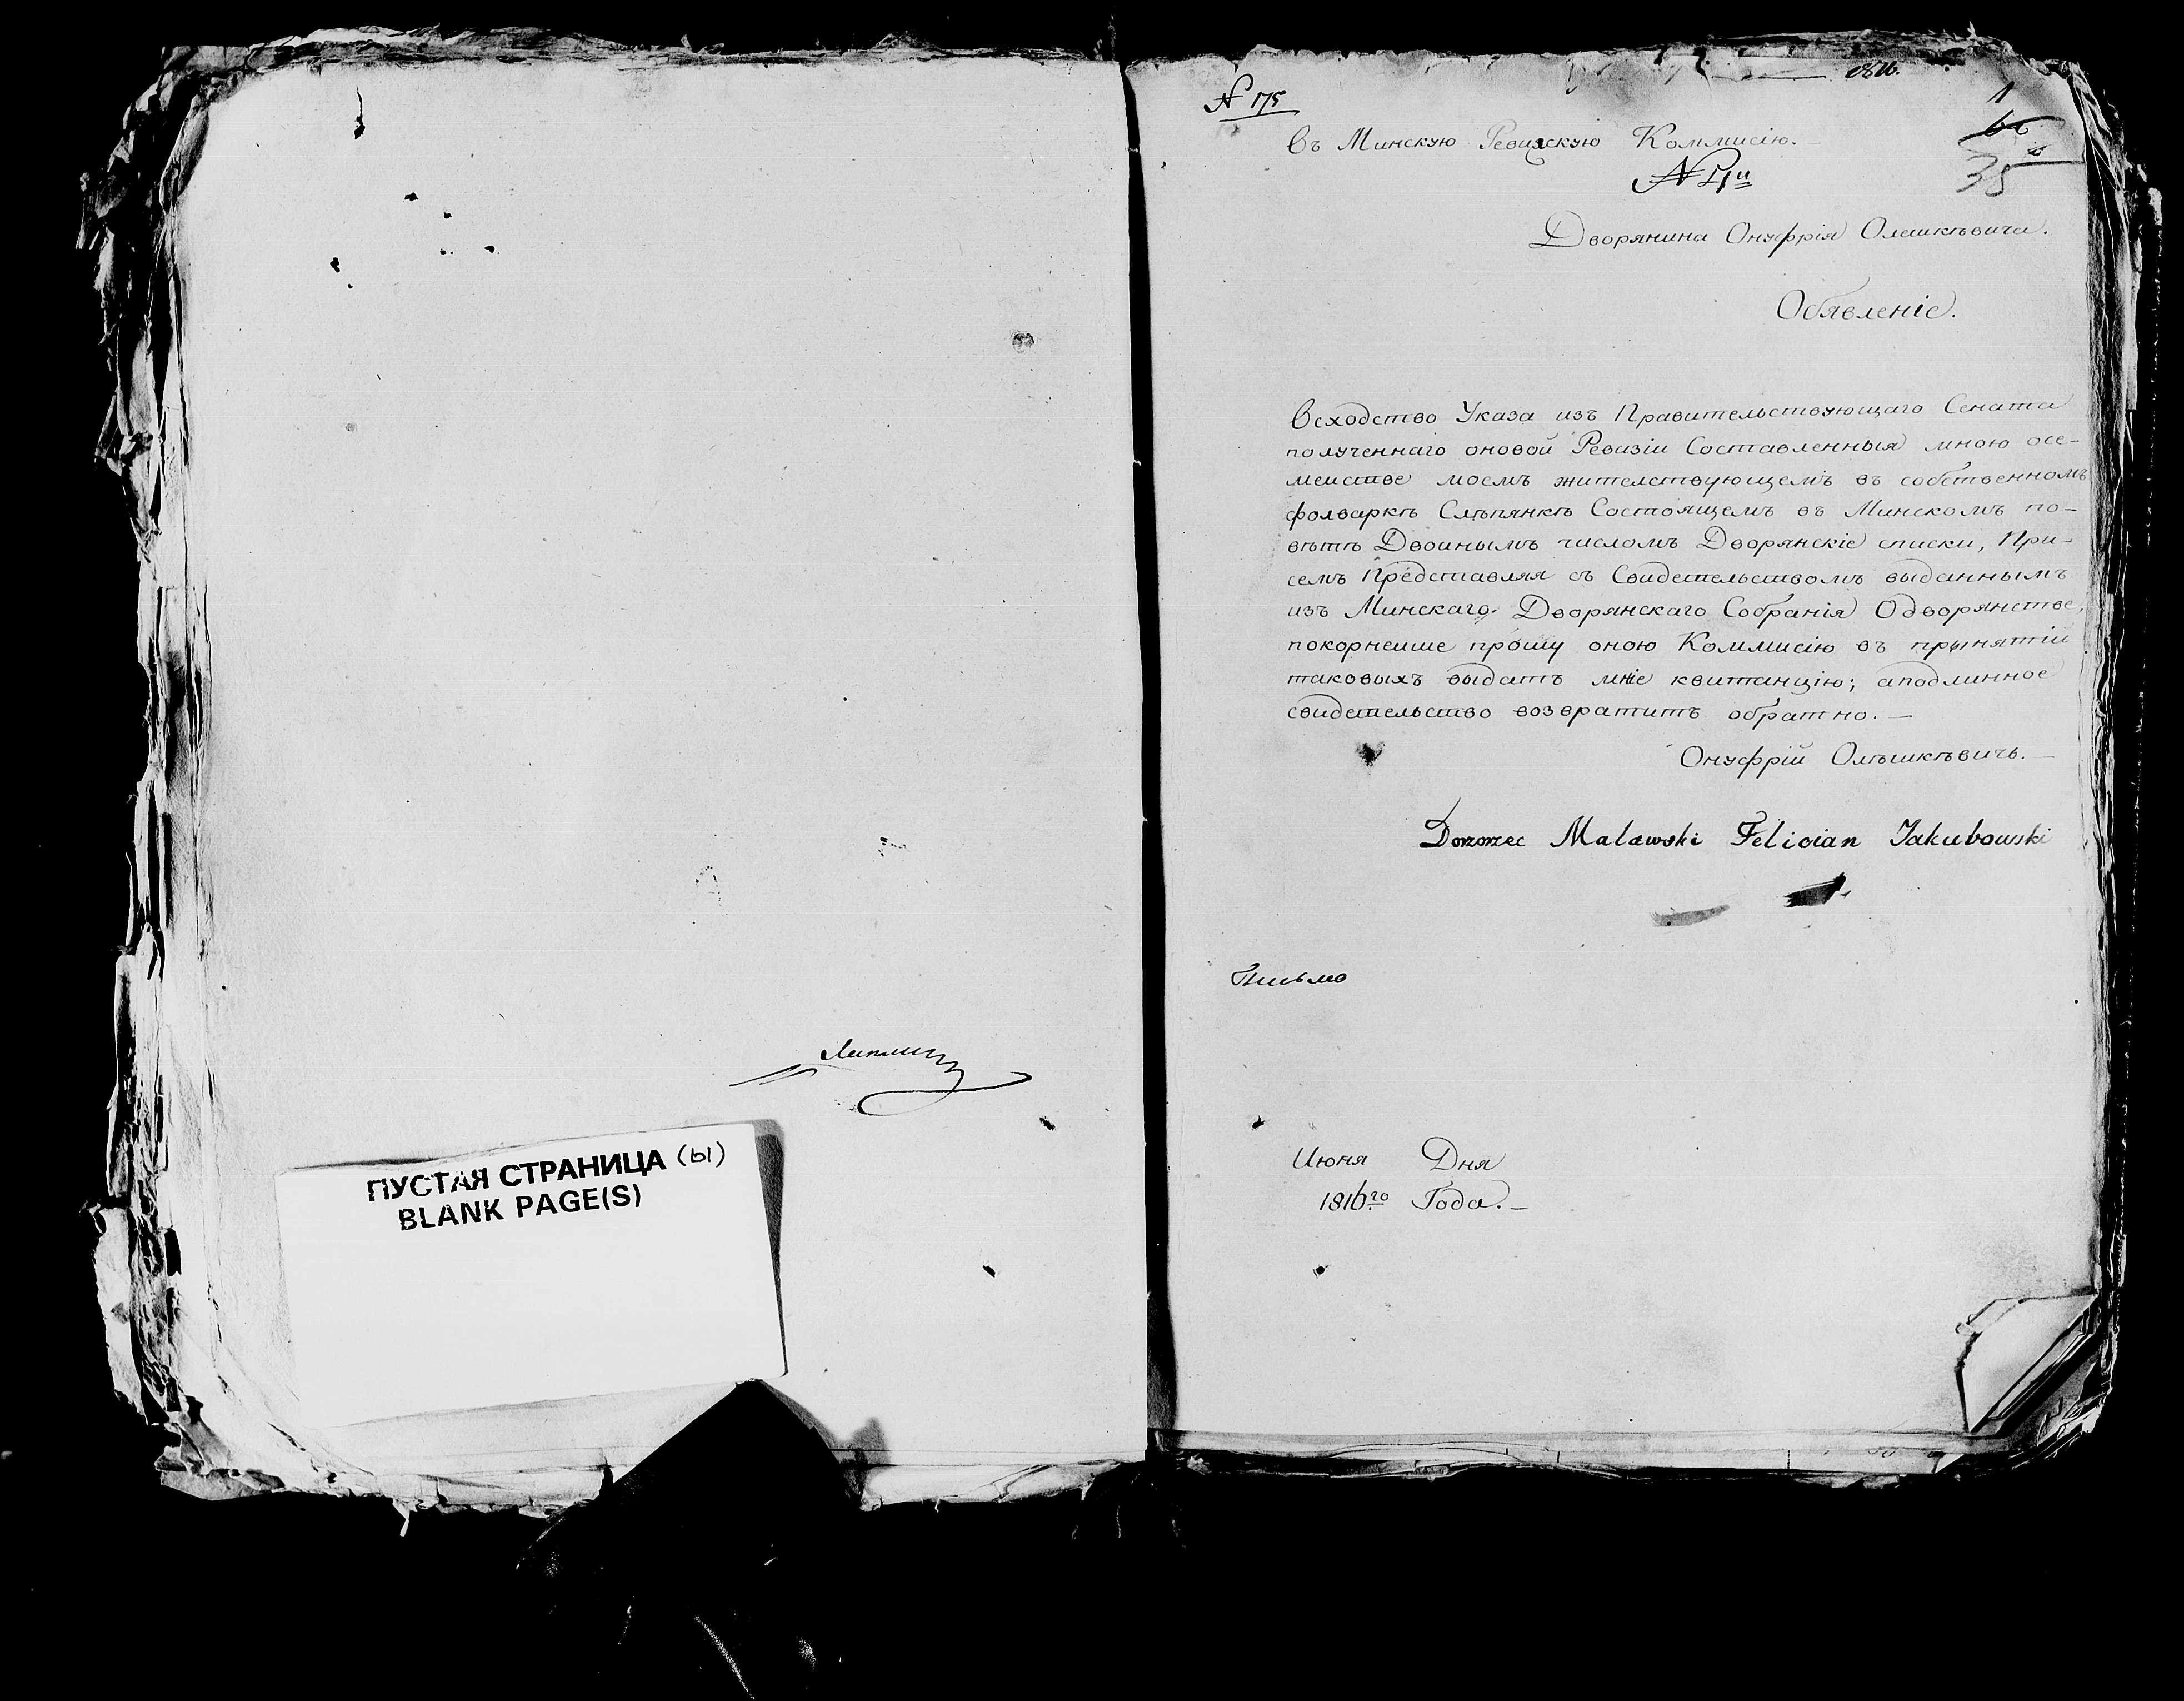 ПУСТАЯ СТРАНИЦА (ы)
BLANK PAGE(S)
№ 175
въ Минскую Ревизскую Коммисію.
1
35
Дворянина Онуфрія Олешкѣвича.
Обявленіе.
Всходство Указа изъ Правительствующаго Сената
полученнаго оновой Ревизіи Составленныя мною осе-
меистве моемъ жителствующемъ въ собственномъ
фолваркѣ Слѣпянкѣ Состоящемъ въ Минскомъ по-
вѣтѣ Двоинымъ числомъ Дворянскіе списки, При-
семъ Представляя съ Свидетельствомъ выданнымъ
изъ Минскаго Дворянскаго Собранія Одворянстве,
покорнеише прошу оною Коммисію въ прынятіи
таковыхъ выдатъ мнѣ квитанцію; аподлинное
свидетельство возвратитъ обратно. —
Онуфрій Олѣшкѣвичъ. —
Malawski Felician Jakubowski
Письмо
Июня Дня
1816го Года. —